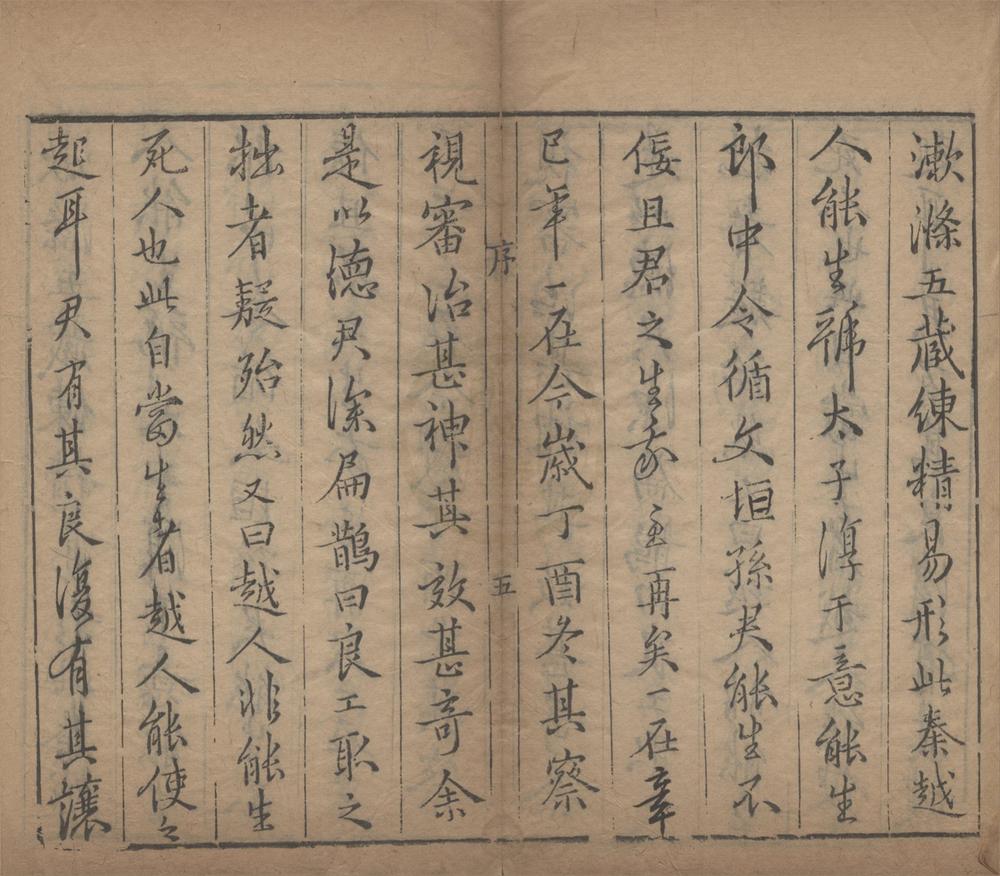 漱滌五蔵練精易形此秦越
人能生虢太子淳于意能生
郎中令循文垣孫君能生不
佞且君之生我至再矣一在辛
巳年一在今歲丁酉冬其察
序 五
視審治甚神其效甚奇余
是以德君深扁鵲曰良工取之
拙者疑殆然又曰越人非能生
死人也此自當生者越人能使之
起耳君有其良復有其讓